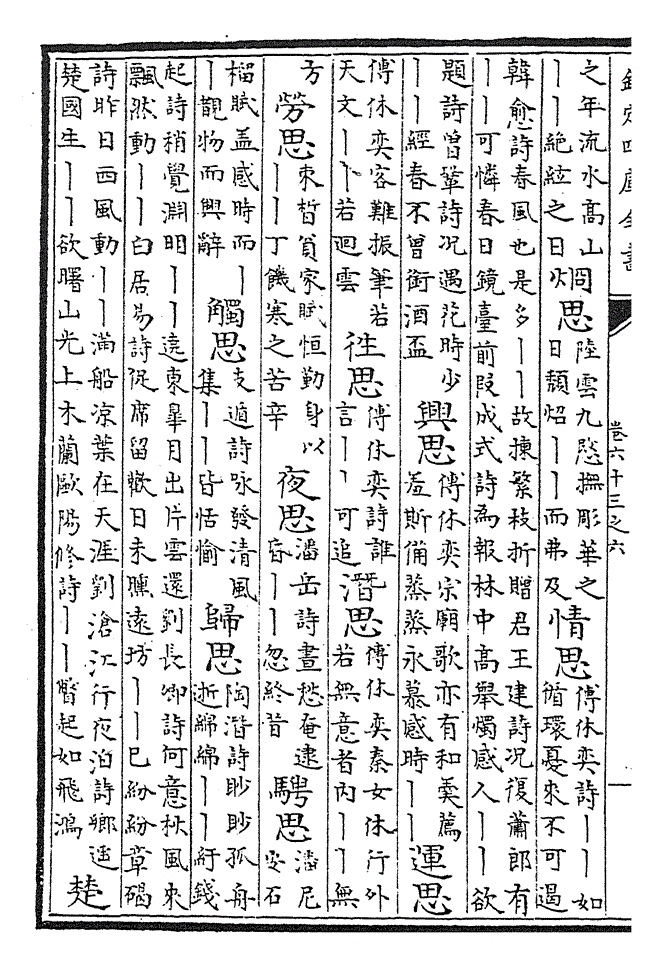 欽定四庫全書
卷六十三之六
之年流水高山丨丨絶絃之日烱思陸雲九愍撫彫華之日頳炤丨丨而弗及情思傅休奕詩丨丨如循環憂來不可遏
韓愈詩春風也是多丨丨故揀繁枝折贈君王建詩况復蕭郎有丨丨可憐春日鏡臺前段成式詩為報林中高舉燭感人丨丨欲
題詩曾鞏詩况遇花時少丨丨經春不曾銜酒盃興思傅休奕宗廟歌亦有和羮薦羞斯備蒸蒸永慕感時丨丨運思
傅休奕客難振筆若天文丨丨若迴雲徃思傅休奕詩誰言丨丨可追潛思傅休奕秦女休行外若無意者内丨丨無
方勞思束晳貧家賦恒勤身以丨丨丁饑寒之苦辛夜思潘岳詩晝愁奄逮昏丨丨忽終昔騁思潘尼安石
榴賦葢感時而丨丨觀物而興辭觸思支遁詩咏發清風集丨丨皆恬愉歸思陶潛詩眇眇孤舟逝綿綿丨丨紆錢
起詩稍覺淵明丨丨遠東臯月出片雲還劉長卿詩何意秋風來飄然動丨丨白居易詩促席留歡日未曛遠坊丨丨已紛紛章碣
詩昨日西風動丨丨滿船凉葉在天涯劉滄江行夜泊詩鄉遥楚國生丨丨欲曙山光上木蘭歐陽修詩丨丨瞥起如飛鴻楚